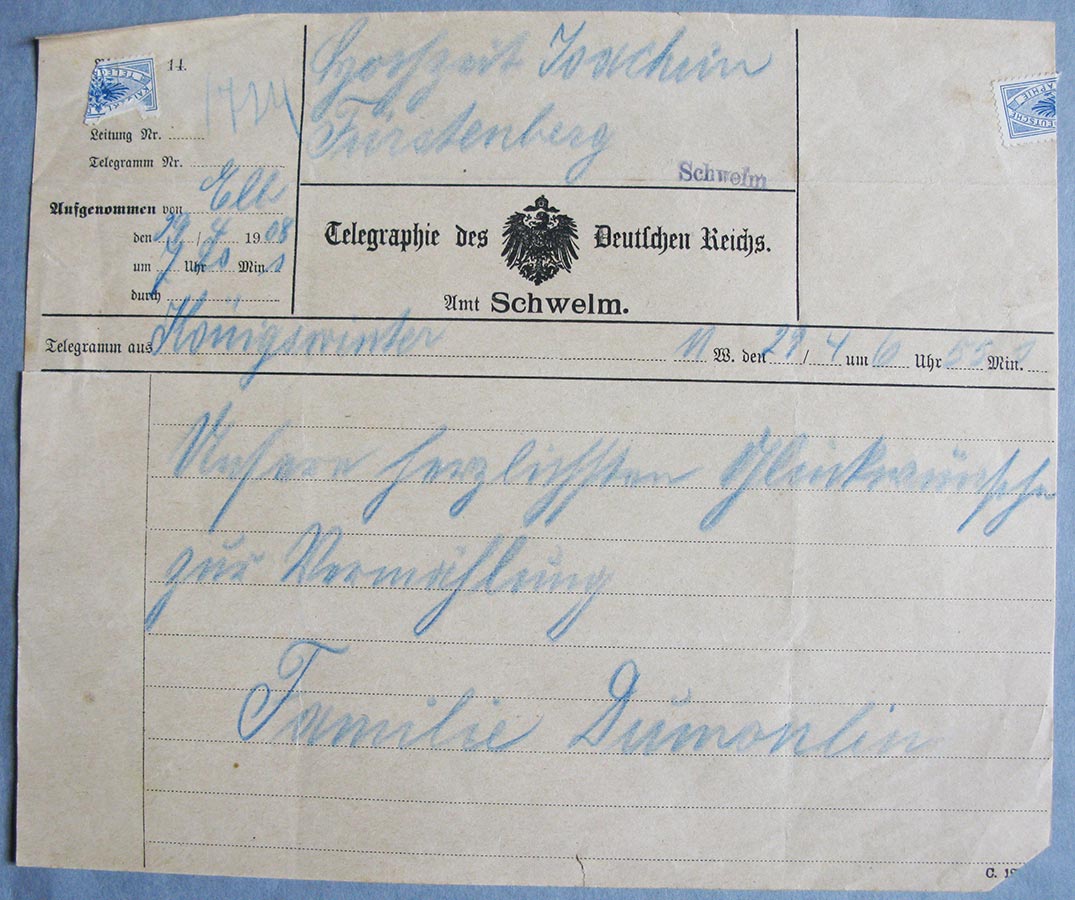 14.
Leitung Nr.
Telegramm Nr.
Aufgenommen von
den 29/4 1908
um 7 Uhr 20 Min.
durch
Hochzeit Joachim
Fürstenberg
Schwelm
Telegraphie des Deutschen Reichs.
Amt Schwelm.
Telegramm aus Königswinter 11 W. den 29/4 um 6 Uhr 55 Min.
Unsere herzlichsten Glückwünsche
zur Vermählung
Familie Dümonlin